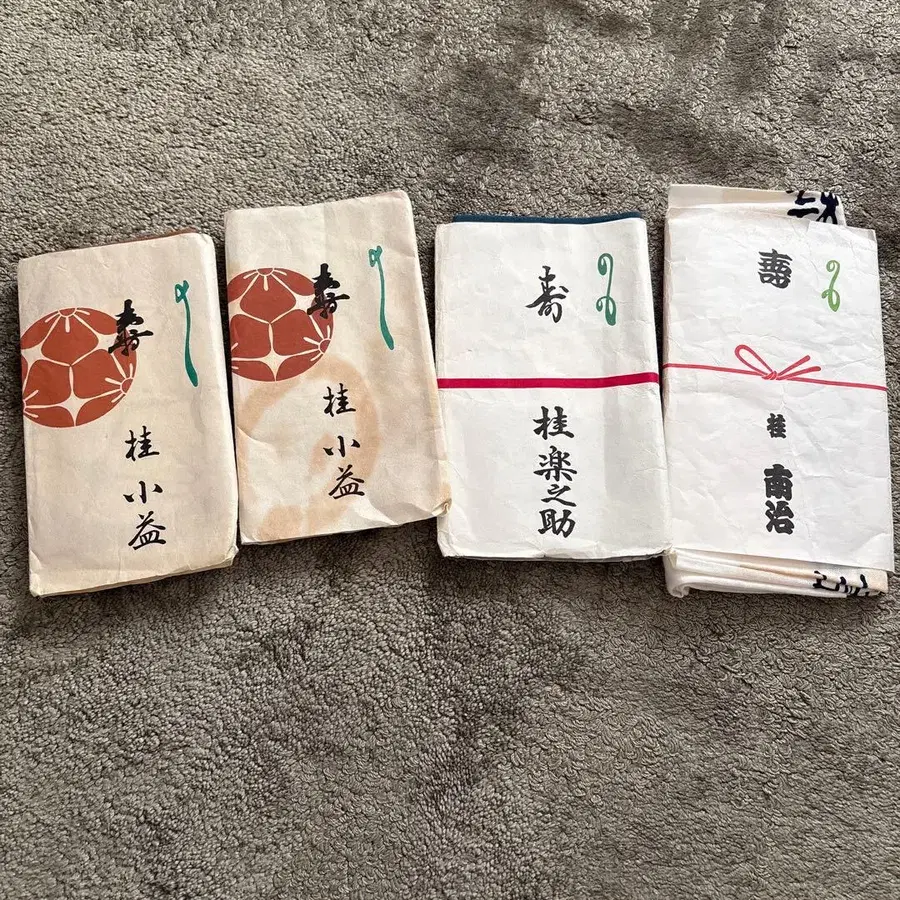 寿
桂 小益
寿
桂 小益
寿
桂 楽之助
壽
桂 南治